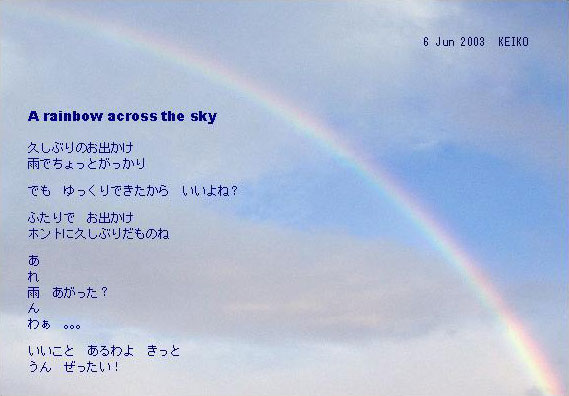 6 Jun 2003　KEIKO
A rainbow across the sky
久しぶりのお出かけ
雨でちょっとがっかり
でも　ゆっくりできたから　いいよね？
ふたりで　お出かけ
ホントに久しぶりだものね
あ
れ
雨　あがった？
ん
わぁ　｡｡｡
いいこと　あるわよ　きっと
うん　ぜったい！